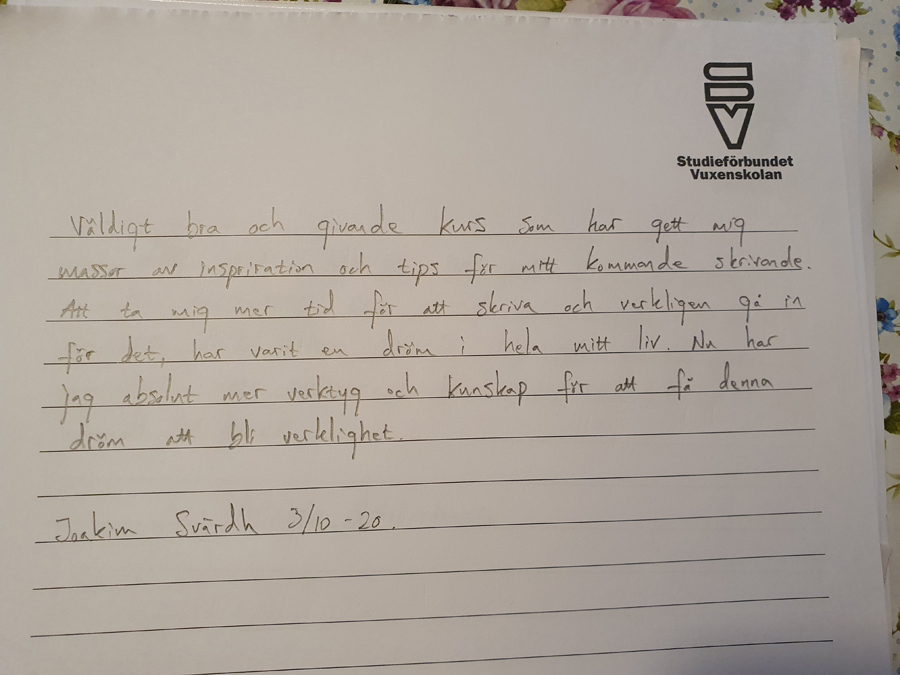 SV
Studieförbundet
Vuxenskolan
Väldigt bra och givande kurs som har gett mig
massor av inspriration och tips för mitt kommande skrivande.
Att ta mig mer tid för att skriva och verkligen gå in
för det, har varit en dröm i hela mitt liv. Nu har
jag absolut mer verktyg och kunskap för att få denna
dröm att bli verklighet.
Joakim Svärdh 3/10 -20.